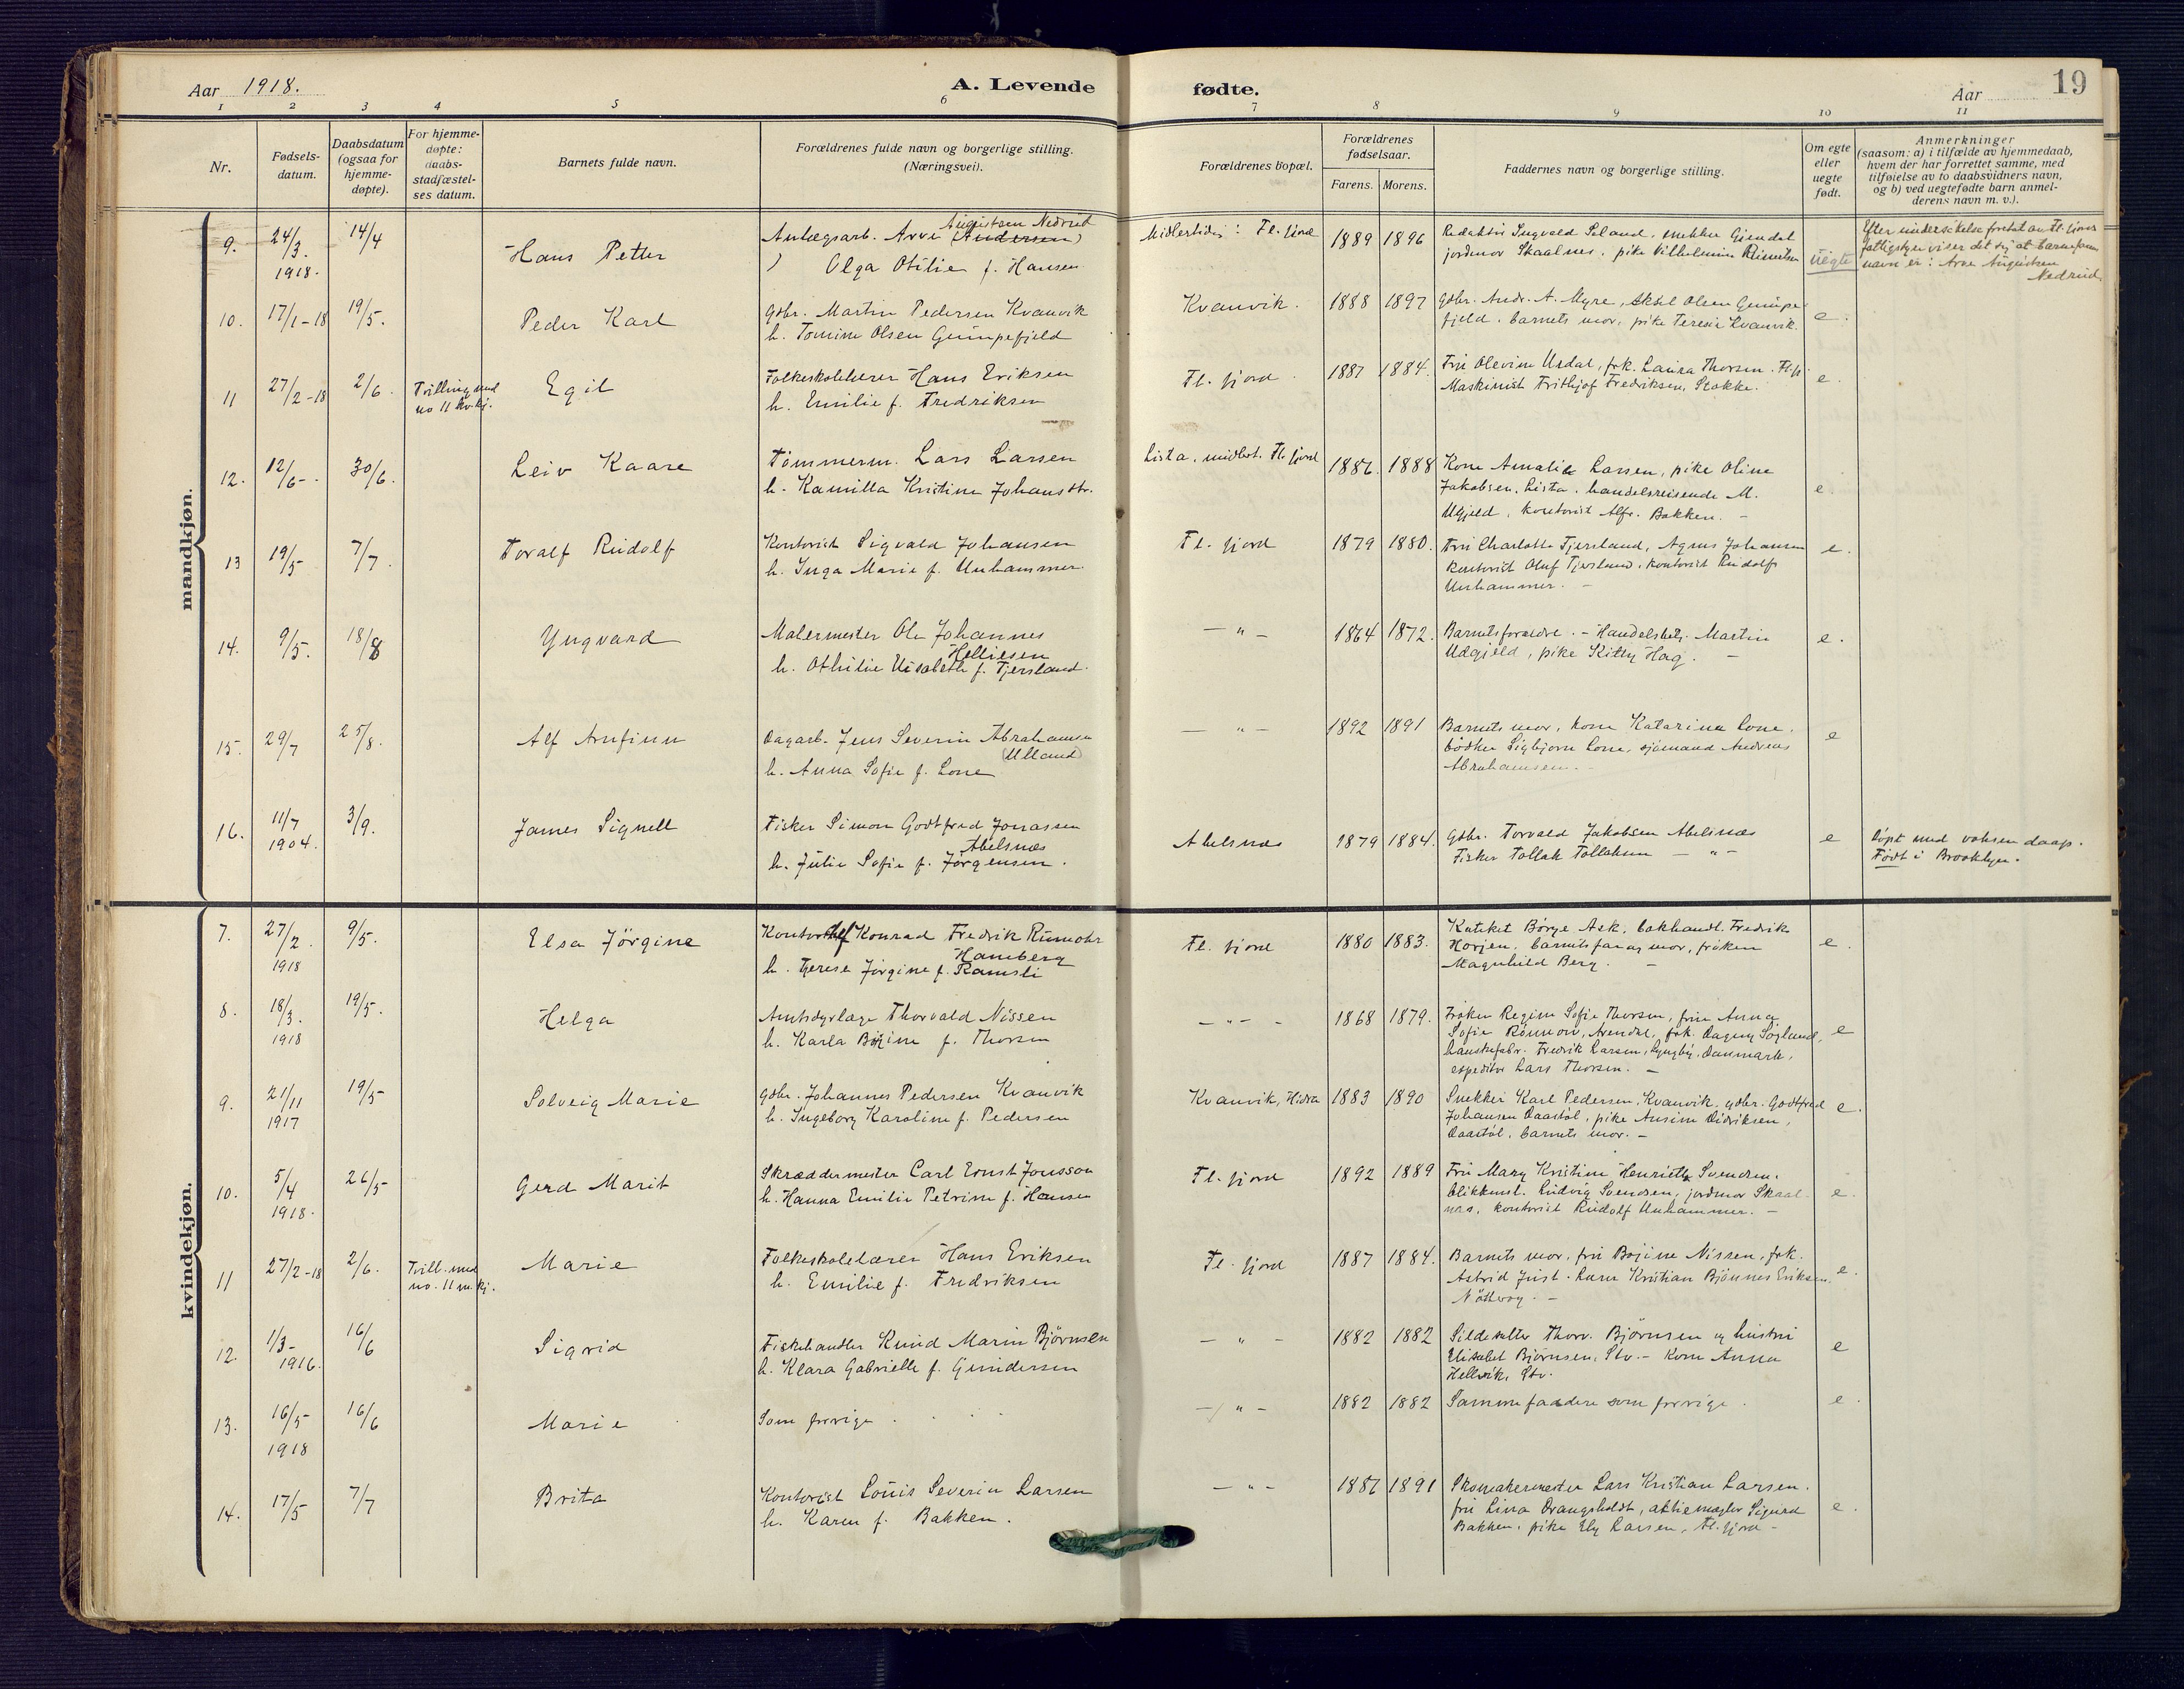 Aar 1918. A. Levende fødte. Aar 19
1 2 3 4 5 6 7 8 9 10 11
Nr.
Fødsels-
datum.
Daabsdatum
(ogsaa for
hjemme-
døpte).
For hjemme-
døpte:
daabs-
stadfæstel-
ses datum.
Barnets fulde navn.
Forældrenes fulde navn og borgerlige stilling.
(Næringsvei).
Forældrenes bopæl.
Forældrenes
fødselsaar.
Farens. Morens.
Faddernes navn og borgerlige stilling.
Om egte
eller
uegte
født.
Anmerkninger
(saasom: a) i tilfælde av hjemmedaab,
hvem der har forrettet samme, med
tilføielse av to daabsvidners navn,
og b) ved uegtefødte barn anmel-
derens navn m. v.).
mandkjøn.
9. 24/3. 1918. 14/4 Hans Petter
Augustsen Nedrud
Anlægsarb. Arve (Andersen)
Olga Otilie f. Hansen
Midlertidig: Fl. fjord 1889 1896
Redaktør Ingvald Seland, snekker Gjendal
jordmor Skaalnes, pike Vilhelmine Reinertsen
uegte
Efter undersøkelse foretat av Fl. fjords
fattigstyre viser det sig at barnefarens
navn er: Arve Augustsen
Nedrud.
10. 17/1-18 19/5. Peder Karl
Gdbr. Martin Pedersen Kvanvik
h. Tomine Olsen Gumpefjeld
Kvanvik. 1888 1897
Gdbr. Andr. A. Myre, Eksil Olsen Gumpe-
fjeld. barnets mor, pike Teresie Kvanvik.
e.
11 27/2-18 2/6. Tvilling med
no 11 kv.kj.
Egil
Folkeskolelærer Hans Eriksen
h. Emilie f. Fredriksen
Fl. fjord. 1887 1884.
Fru Olevine Urdal, frk. Laura Thorsen. Fl.fj.
Maskinist Frithjof Fredriksen, Stokke.
e.
12. 12/6-. 30/6. Leiv Kaare
Tømmerm. Lars Larsen
h. Kamilla Kristine Johansdtr.
Lista, midlert. Fl. fjord 1886. 1888
Kone Amalie Larsen, pike Oline
Jakobsen, Lista. handelsreisende M.
Ugjeld, kontorist Alfr. Bakken. -
e.
13 19/5 7/7. Toralf Rudolf
Kontorist Sigvald Johansen
h. Inga Marie f. Unhammer.
Fl. fjord 1879 1880.
Fru Charlotte Tjersland, Agnes Johansen
kontorist Oluf Tjersland, kontorist Rudolf
Unhammer. -
e.
14. 9/5. 18/8 Yngvard
Malermester Ole Johannes
Helliesen
h. Othilie Elisabeth f. Tjersland.
- " - 1864 1872.
Barnets forældre. - Handelsbetj. Martin
Udgjeld, pike Kitty Hag. -
e.
15. 29/7 25/8. Alf Arnfinn
Dagarb. Jens Severin Abrahamsen
(Ulland)
h. Anna Sofie f. Lone
- " - 1892 1891
Barnets mor, kone Katarine Lone,
bødker Sigbjørn Lone, sjømand Andreas
Abrahamsen. -
e
16. 11/7 1904. 3/9. James Signell
Fisker Simon Godtfred Jonassen
Abelsnæs
h. Julie Sofie f. Jørgensen.
Abelsnæs 1879 1884.
Gdbr. Torvald Jakobsen Abelsnæs
Fisker Tollak Tollaksen - " -
e
Døpt med voksen daap.
Født i Brooklyn.
kvindekjøn.
7. 27/2. 1918 9/5. Elsa Jörgine
Kontorchef Konrad Fredrik Rumohr
Hamberg
h. Terese Jörgine f. Ramsli
Fl. fjord 1880 1883.
Kateket Börge Ask, bokhandl. Fredrik
Horjen, barnets far og mor, frøken
Magnhild Berg. -
e.
8. 18/3. 1918 19/5. Helga
Amtsdyrlæge Thorvald Nissen
h. Karla Bojine f. Thorsen
- " - 1868 1879.
Frøken Regine Sofie Thorsen, frue Anna
Sofie Rönnow, Arendal, frk. Dagny Søyland,
hanskefabr. Fredrik Larsen, Lyngby, Danmark,
expeditør Lars Thorsen. -
e
9. 21/11 1917 19/5 Solveig Marie
Gdbr. Johannes Pedersen Kvanvik
h. Ingeborg Karoline f. Pedersen
Kvanvik, Hidra 1883 1890
Snekker Karl Pedersen, Kvanvik, gdbr. Godtfred
Johansen Daastøl, pike Ansine Didriksen,
Daastøl, barnets mor. -
e.
10. 5/4 1918. 26/5 Gerd Marit
Skræddermester Carl Ernst Jonsson
h. Hanna Emilie Petrine f. Hansen
Fl. fjord 1892 1889
Fru Mary Kristine Henriette Svendsen,
blikkensl. Ludvig Svendsen, jordmor Skaal-
nes, kontorist Rudolf Unhammer. -
e.
11 27/2-18 2/6. Tvill. med
no. 11 m.kj.
Marie
Folkeskolelærer Hans Eriksen
h. Emilie f. Fredriksen
Fl. fjord 1887 1884.
Barnets mor, fru Bojine Nissen, frk.
Astrid Just. Lærer Kristian Bjønnes Eriksen
Nötterøy. -
e.
12. 1/3- 1916. 16/6 Sigrid
Fiskehandler Knud Marin Björnsen
h. Klara Gabrielle f. Gundersen
- " - 1882 1882
Sildesalter Thorv. Björnsen og hustru
Elisabet Björnsen, Stv. - Kone Anna
Hellvik, Stv.
e
13. 16/5 1918 16/6 Marie
Som forrige
- " - 1882 1882
Samme faddere som forrige.
e.
14. 17/5 7/7 Brita
Kontorist Louis Severin Larsen
h. Karen f. Bakken.
- " - 1886 1891
Skomakermester Lars Kristian Larsen.
fru Lina Drangsholdt, aktiemægler Sigurd
Bakken, pike Ely Larsen, Fl. fjord -
e.